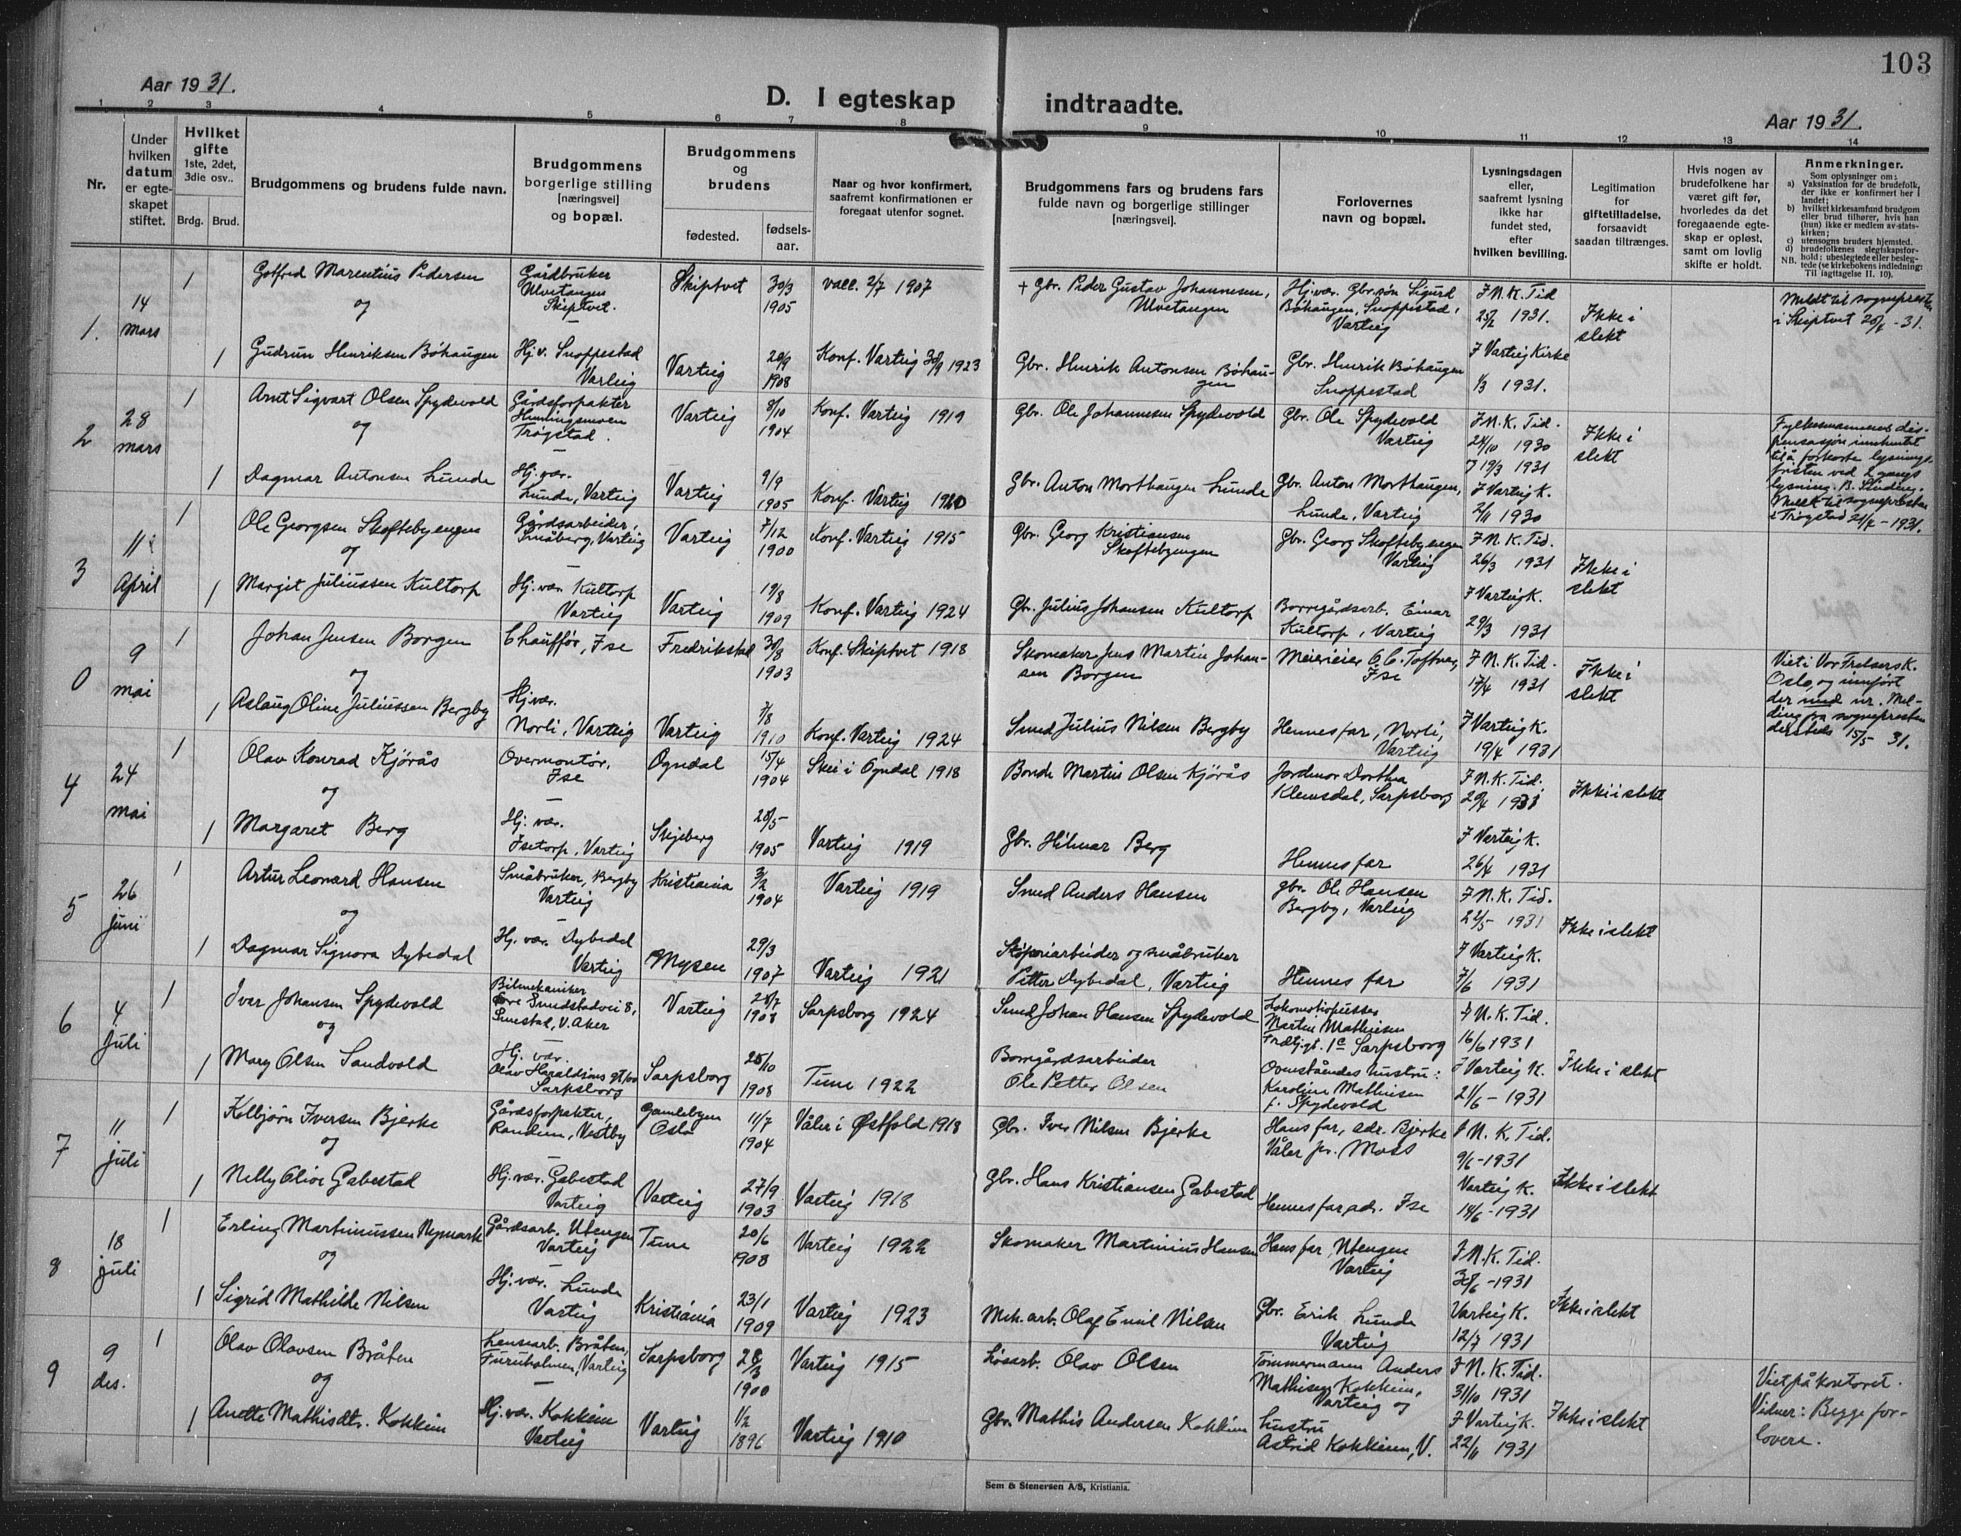 103
Aar 1931.
D. I egteskap indtraadte.
Aar 1931.
1 2 3 4 5 6 7 8 9 10 11 12 13 14
Nr.
Under hvilken datum er egteskapet stiftet.
Hvilket gifte 1ste, 2det, 3die osv..
Brdg. Brud.
Brudgommens og brudens fulde navn.
Brudgommens borgerlige stilling [næringsvei] og bopæl.
Brudgommens og brudens
fødested. fødselsaar.
Naar og hvor konfirmert, saafremt konfirmationen er foregaat utenfor sognet.
Brudgommens fars og brudens fars fulde navn og borgerlige stillinger [næringsvei]
Forlovernes navn og bopæl.
Lysningsdagen eller, saafremt lysning ikke har fundet sted, efter hvilken bevilling.
Legitimation for giftetilladelse. forsaavidt saadan tiltrænges.
Hvis nogen av brudefolkene har været gift før, hvorledes da det foregaaende egteskap er opløst, samt om lovlig skifte er holdt.
Anmerkninger.
Som oplysninger om:
a) Vaksination for de brudefolk, der ikke er konfirmert her i landet;
b) hvilket kirkesamfund brudgom eller brud tilhører, hvis han (hun) ikke er medlem av statskirken;
c) utensogns bruders hjemsted.
d) brudefolkenes slegtskapsforhold; ubeslegtede eller beslegtede (se kirkebokens indledning: Til iagttagelse II. 10).
NB.
1. 14 mars 1 Gotfred Marentius Pedersen Gårdbruker Ulvetangen Skiptvet. Skiptvet 30/3 1905 vacc. 2/7 1907 + Gbr. Peder Gustav Johannesen, Ulvetangen Hj.vær. Gbr.søn Sigurd Bøhaugen, Snoppestad, Varteig I N.K. Tid 25/2 1931. Ikke i slekt Meldt til sognepresten i Skiptvet
og
1 Gudrun Henriksen Bøhaugen Hj.v. Snoppestad Varteig Varteig 20/9 1908 Konf. Varteig 30/9 1923 Gbr. Henrik Antonsen Bøhaugen Gbr. Henrik Bøhaugen Snoppestad I Varteig Kirke 1/3 1931.
2 28 mars 1 Arnt Sigvart Olsen Spydevold Gårdsforpakter Trøgstad. Varteig 8/10 1904 Konf. Varteig 1919 Gbr. Ole Johannesen Spydevold Gbr. Ole Spydevold Varteig I N.K. Tid. 24/10 1930 Ikke i slekt Fylkesmannens dispensasjon innhentet til å forkorte lysningsfristen ved 2 gangs lysning. Meldt til sognepresten i Trøgstad
og
1 Dagmar Antonsen Lunde Hj.vær. Lunde, Varteig Varteig 9/9 1905 Konf. Varteig 1920 Gbr. Anton Morthaugen Lunde Gbr. Anton Morthaugen, Lunde, Varteig 19/3 1931 I Varteig K. 2/11 1930
3 11 April 1 Ole Georgsen Skoftebyengen Gårdsarbeider, Småberg, Varteig Varteig 7/12 1900 Konf. Varteig 1915 Gbr. Georg Kristiansen Skoftebyengen Gbr. Georg Skoftebyengen Varteig I N.K. Tid. 26/3 1931 Ikke i slekt
og
1 Margit Juliussen Kultorp Hj.vær. Kultorp Varteig Varteig 19/8 1909 Konf. Varteig 1924 Gbr. Julius Johansen Kultorp Borregårdsarb. Einar Kultorp, Varteig I Varteig K. 29/3 1931
0 9 mai 1 Johan Jensen Borgen Chauffør, Ise Fredrikstad 30/8 1903 Konf. Skiptvet 1918 Skomaker Jens Martin Johansen Borgen Meierieier O.C. Toftner, Ise I N.K. Tid. 17/4 1931 Ikke i slekt Viet i Vor Frelsers K. Oslo, og innført der med nr. Melding fra sognepresten dersteds 15/5 31.
og
1 Aslaug Oline Juliussen Bergby Hj.vær. Norli, Varteig Varteig 7/8 1910 Konf. Varteig 1924 Smed Julius Nilsen Bergby Hennes far, Norli, Varteig I Varteig K. 19/4 1931
4 24 mai 1 Olav Konrad Kjørås Overmontør, Ise Ogndal 15/4 1904 Skei i Ogndal 1918 Bonde Martin Olsen Kjørås Jordmor Dorthea Klemsdal, Sarpsborg I N.K. Tid. 20/4 1931 Ikke i slekt
og
1 Margaret Berg Hj. vær. Isetorp, Varteig Skjeberg 28/5 1905 Varteig 1919 Gbr. Hilmar Berg Hennes far I Varteig K. 26/4 1931
5 26 juni 1 Artur Leonard Hansen Småbruker, Bergby Varteig Kristiania 3/2 1904 Varteig 1919 Smed Anders Hansen Gbr. Ole Hansen Bergby, Varteig I N.K. Tid. 22/5 1931 Ikke i slekt
og
1 Dagmar Signora Dybedal Hj. vær. Dybedal Varteig Mysen 29/3 1907 Varteig 1921 Støperiarbeider og småbruker Petter Dybedal, Varteig Hennes far I Varteig K. 7/6 1931
6 4 Juli 1 Ivar Johansen Spydevold Bilmekaniker Smestad, V. Aker Varteig 28/7 1908 Sarpsborg 1924 Smed Johan Hansen Spydevold Lokomotivpusser Martin Mathisen 1c Sarpsborg I N.K. Tid. 16/6 1931 Ikke i slekt
og
1 Mary Olsen Sandvold Hj. vær. Olav Haraldsons gt. Sarpsborg Sarpsborg 25/10 1908 Tune 1922 Borregårdsarbeider Ole Petter Olsen Ovenståendes hustru: Karoline Mathisen f. Spydevold I Varteig K. 21/6 - 1931
7 11 juli 1 Kolbjørn Iversen Bjerke Gårdsforpakter, Randem, Vestby Gamlebyen Oslo 11/7 1904 Våler i Østfold 1918 Gbr. Iver Nilsen Bjerke Hans far, adr. Bjerke Våler pr. Moss I N.K. Tid. 9/6-1931 Ikke i slekt
og
1 Nelly Olive Gabestad Hj.vær. Gabestad Varteig Varteig 27/9 1903 Varteig 1918 Gbr. Hans Kristiansen Gabestad Hennes far, adr. Ise Varteig K. 14/6-1931
8 18 juli 1 Erling Martiniussen Nymark Gårdsarb. Utengen Varteig Tune 20/6 1908 Varteig 1922 Skomaker Martinius Hansen Hans far, Utengen Varteig I N.K. Tid. 30/6-1931 Ikke i slekt
og
1 Sigrid Mathilde Nilsen Hj.vær. Lunde Varteig Kristiania 23/1 1909 Varteig 1923 Mek. arb. Olaf Emil Nilsen Gbr. Erik Lunde Varteig Varteig K. 12/7 1931
9 9 des. 1 Olav Olavsen Bråten Lensearb. Bråten, Furuholmen, Varteig Sarpsborg 28/3 1900 Varteig 1915 Løsarb. Olav Olsen Tømmermann Anders Mathisen Kokkim, Varteig og I N.K. Tid. 31/10 1931 Ikke i slekt Viet på kontoret. Vidner: Begge forlovere.
og
1 Anette Mathisdtr. Kokkim Hj. vær. Kokkim Varteig Varteig 1/2 1896 Varteig 1910 Gbr. Mathis Andersen Kokkim hustru Astrid Kokkim, V. I Varteig K. 22/11 1931
Sem & Stenersen A/S, Kristiania.